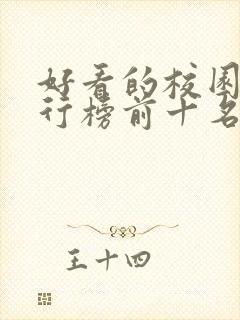 好看的校园
行榜前十名
王十四